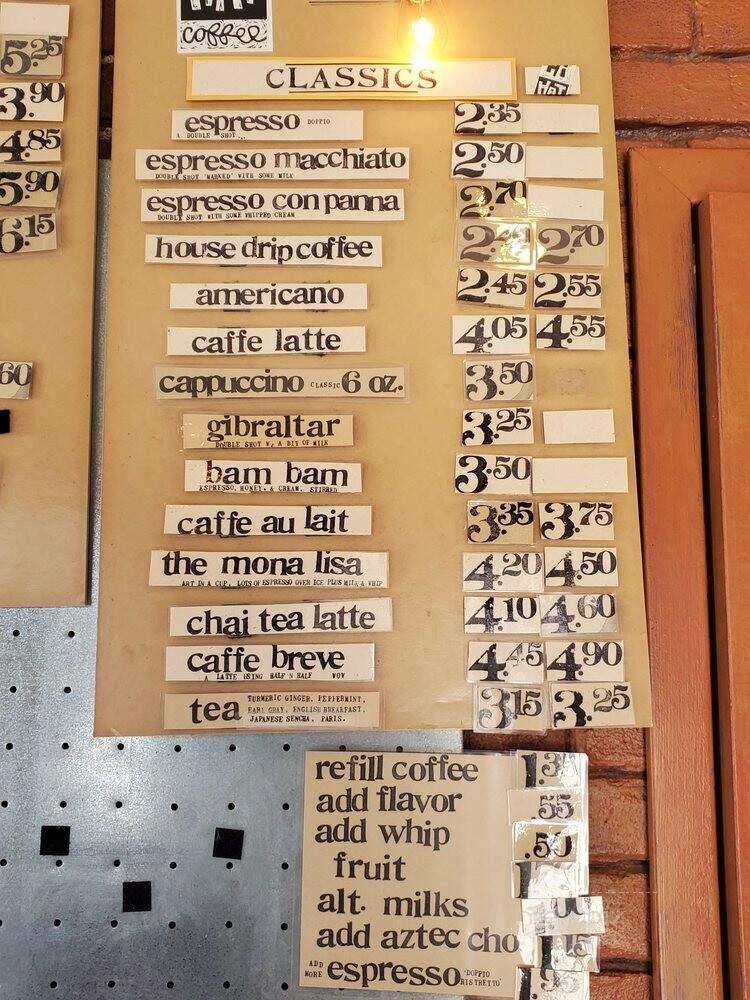 coffee
CLASSICS
HOT
5.25
3.90
4.85
5.90
6.15
60
espresso DOPPIO 2.35
A DOUBLE SHOT...
espresso macchiato 2.50
DOUBLE SHOT 'MARKED' WITH SOME MILK
espresso con panna 2.70
DOUBLE SHOT WITH SOME WHIPPED CREAM
house drip coffee 2.70
americano 2.45 2.55
caffe latte 4.05 4.55
cappuccino CLASSIC 6 oz. 3.50
gibraltar 3.25
DOUBLE SHOT W/ A BIT OF MILK
bam bam 3.50
ESPRESSO, HONEY, & CREAM, STIRRED
caffe au lait 3.35 3.75
the mona lisa 4.20 4.50
ART IN A CUP. LOTS OF ESPRESSO OVER ICE PLUS MILK & WHIP
chai tea latte 4.10 4.60
caffe breve 4.45 4.90
A LATTE USING HALF N HALF WOW
tea TURMERIC GINGER, PEPPERMINT, 3.15 3.25
EARL GRAY, ENGLISH BREAKFAST,
JAPANESE SENCHA, PARIS.
refill coffee
add flavor .55
add whip .50
fruit
alt. milks
add aztec cho
ADD MORE espresso 'DOPPIO RISTRETTO'